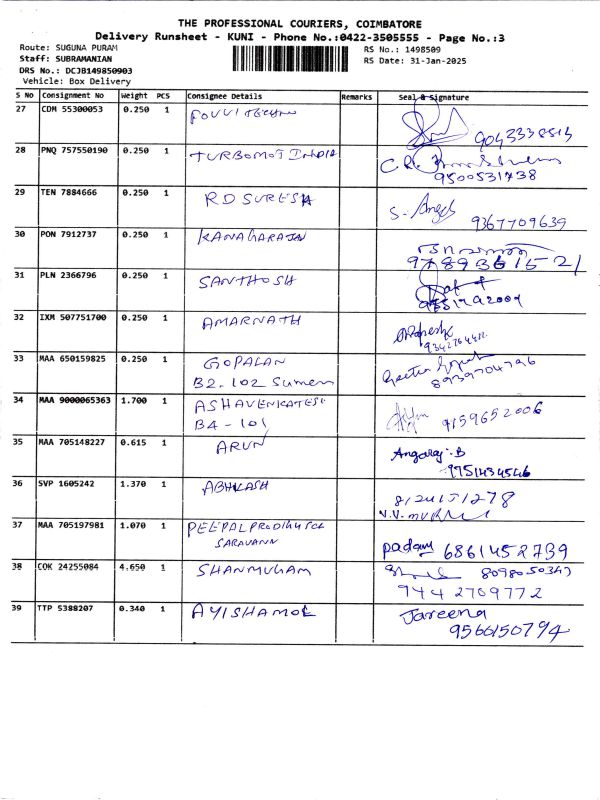 THE PROFESSIONAL COURIERS, COIMBATORE
Delivery Runsheet - KUNI - Phone No.:0422-3505555 - Page No.:3
Route: SUGUNA PURAM
Staff: SUBRAMANIAN
DRS No.: DCJB149850903
Vehicle: Box Delivery
RS No.: 1498509
RS Date: 31-Jan-2025
S No Consignment No Weight PCS Consignee Details Remarks Seal & Signature
27 CDM 55300053 0.250 1
28 PNQ 757550190 0.250 1 TURBOMOT INDIA
9500531738
29 TEN 7884666 0.250 1 RD SURESH S. Angel
9367709639
30 PON 7912737 0.250 1 KANAGARAJAN
9789361521
31 PLN 2366796 0.250 1 SANTHOSH
32 IXM 507751700 0.250 1 AMARNATH
33 MAA 650159825 0.250 1 GOPALAN
B2-102 Sumeru
8939704796
34 MAA 9000065363 1.700 1 ASHAVENKATESH
B4-101
9159652006
35 MAA 705148227 0.615 1 ARUN Angaraj.B
9751434546
36 SVP 1605242 1.370 1 ABHILASH
37 MAA 705197981 1.070 1
SARAVANN
padam 6861452739
38 COK 24255084 4.650 1 SHANMUGAM
9442709772
39 TTP 5388207 0.340 1 AYISHAMOL Jareena
9566150794